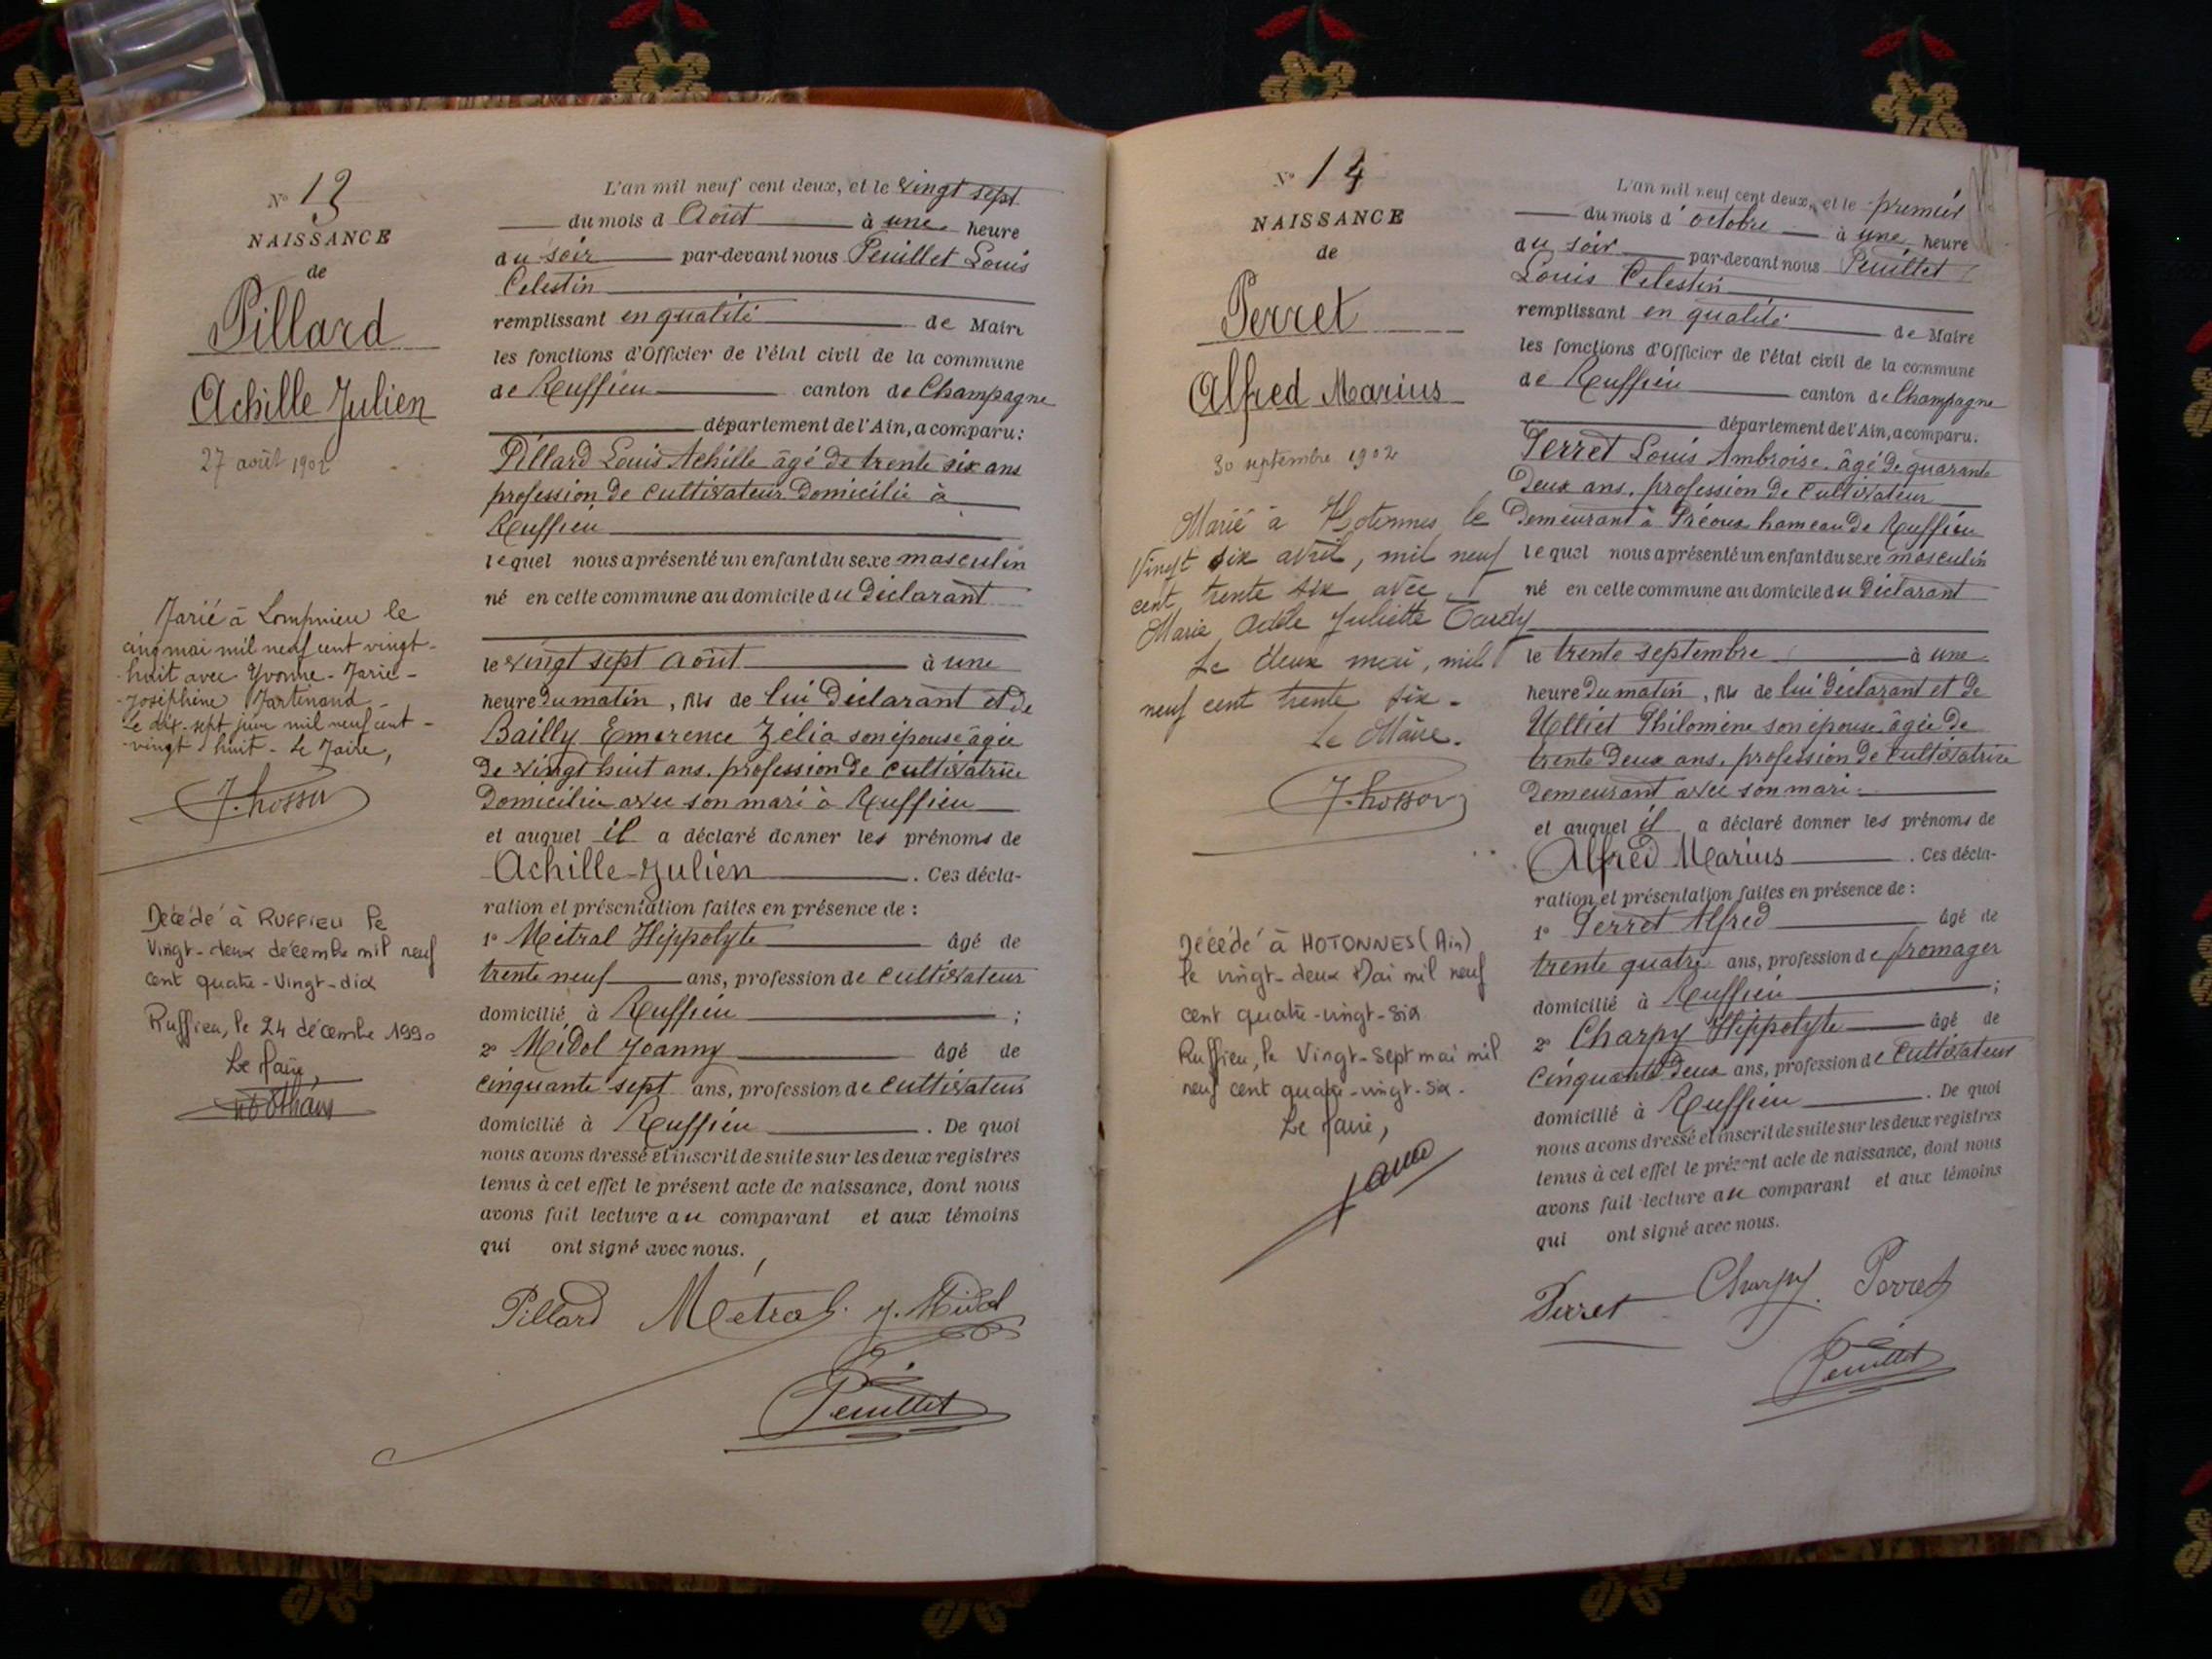 N° 13
NAISSANCE
de
Pillard
Achille Julien
27 août 1902
Marié à Lompnieu le
cinq mai mil neuf cent vingt-
-huit avec Yvonne-Marie-
-Joséphine Martinand-
Le dix-sept juin mil neuf cent-
-vingt-huit- Le Maire,
Décédé à RUFFIEU le
Vingt-deux décembre mil neuf
cent quatre-Vingt-dix
Ruffieu, le 24 décembre 1990
Le Maire,
L'an mil neuf cent deux, et le vingt sept
du mois d Août à une heure
du soir par-devant nous Peuillet Louis
Celestin
remplissant en qualité de Maire
les fonctions d'Officier de l'état civil de la commune
de Ruffieu canton de Champagne
département de l'Ain, a comparu:
Pillard Louis Achille âgé de trente six ans
profession de cultivateur domicilié à
Ruffieu
lequel nous a présenté un enfant du sexe masculin
né en cette commune au domicile du déclarant
le vingt sept Août à une
heure du matin, fils de lui déclarant et de
Bailly Emerence Zélia son épouse âgée
de vingt huit ans. profession de cultivatrice
domiciliée avec son mari à Ruffieu
et auquel il a déclaré donner les prénoms de
Achille-Julien . Ces décla-
ration et présentation faites en présence de :
1° Métral Hippolyte âgé de
trente neuf ans, profession de cultivateur
domicilié à Ruffieu ;
2° Midol Joanny âgé de
cinquante sept ans, profession de cultivateur
domicilié à Ruffieu . De quoi
nous avons dressé et inscrit de suite sur les deux registres
tenus à cet effet le présent acte de naissance, dont nous
avons fait lecture au comparant et aux témoins
qui ont signé avec nous.
Pillard Métral J. Midol
Peuillet
N° 14
NAISSANCE
de
Perret
Alfred Marius
30 septembre 1902
Marié à Hotonnes le
Vingt six avril, mil neuf
cent trente six avec
Marie Adèle Juliette Tardy
Le deux mai, mil
neuf cent trente six-
Le Maire.
Décédé à HOTONNES (Ain)
le vingt-deux Mai mil neuf
cent quatre-vingt-six
Ruffieu, le Vingt-sept mai mil
neuf cent quatre-vingt-six.
Le Maire,
L'an mil neuf cent deux, et le premier
du mois d'octobre à une heure
du soir par-devant nous Peuillet
Louis Celestin
remplissant en qualité de Maire
les fonctions d'Officier de l'état civil de la commune
de Ruffieu canton de Champagne
département de l'Ain, a comparu.
Perret Louis Ambroise. âgé de quarante
deux ans. profession de cultivateur
demeurant à Préoux hameau de Ruffieu
lequel nous a présenté un enfant du sexe masculin
né en cette commune au domicile du déclarant
le trente septembre à une
heure du matin, fils de lui déclarant et de
Ulliet Philomène son épouse âgée de
trente deux ans, profession de cultivatrice
demeurant avec son mari.
et auquel il a déclaré donner les prénoms de
Alfred Marius . Ces décla-
ration et présentation faites en présence de :
1° Perret Alfred âgé de
trente quatre ans, profession de fromager
domicilié à Ruffieu ;
2° Charpy Hippolyte âgé de
cinquante deux ans, profession de cultivateur
domicilié à Ruffieu . De quoi
nous avons dressé et inscrit de suite sur les deux registres
tenus à cet effet le présent acte de naissance, dont nous
avons fait lecture au comparant et aux témoins
qui ont signé avec nous.
Perret Charpy Perret
Peuillet